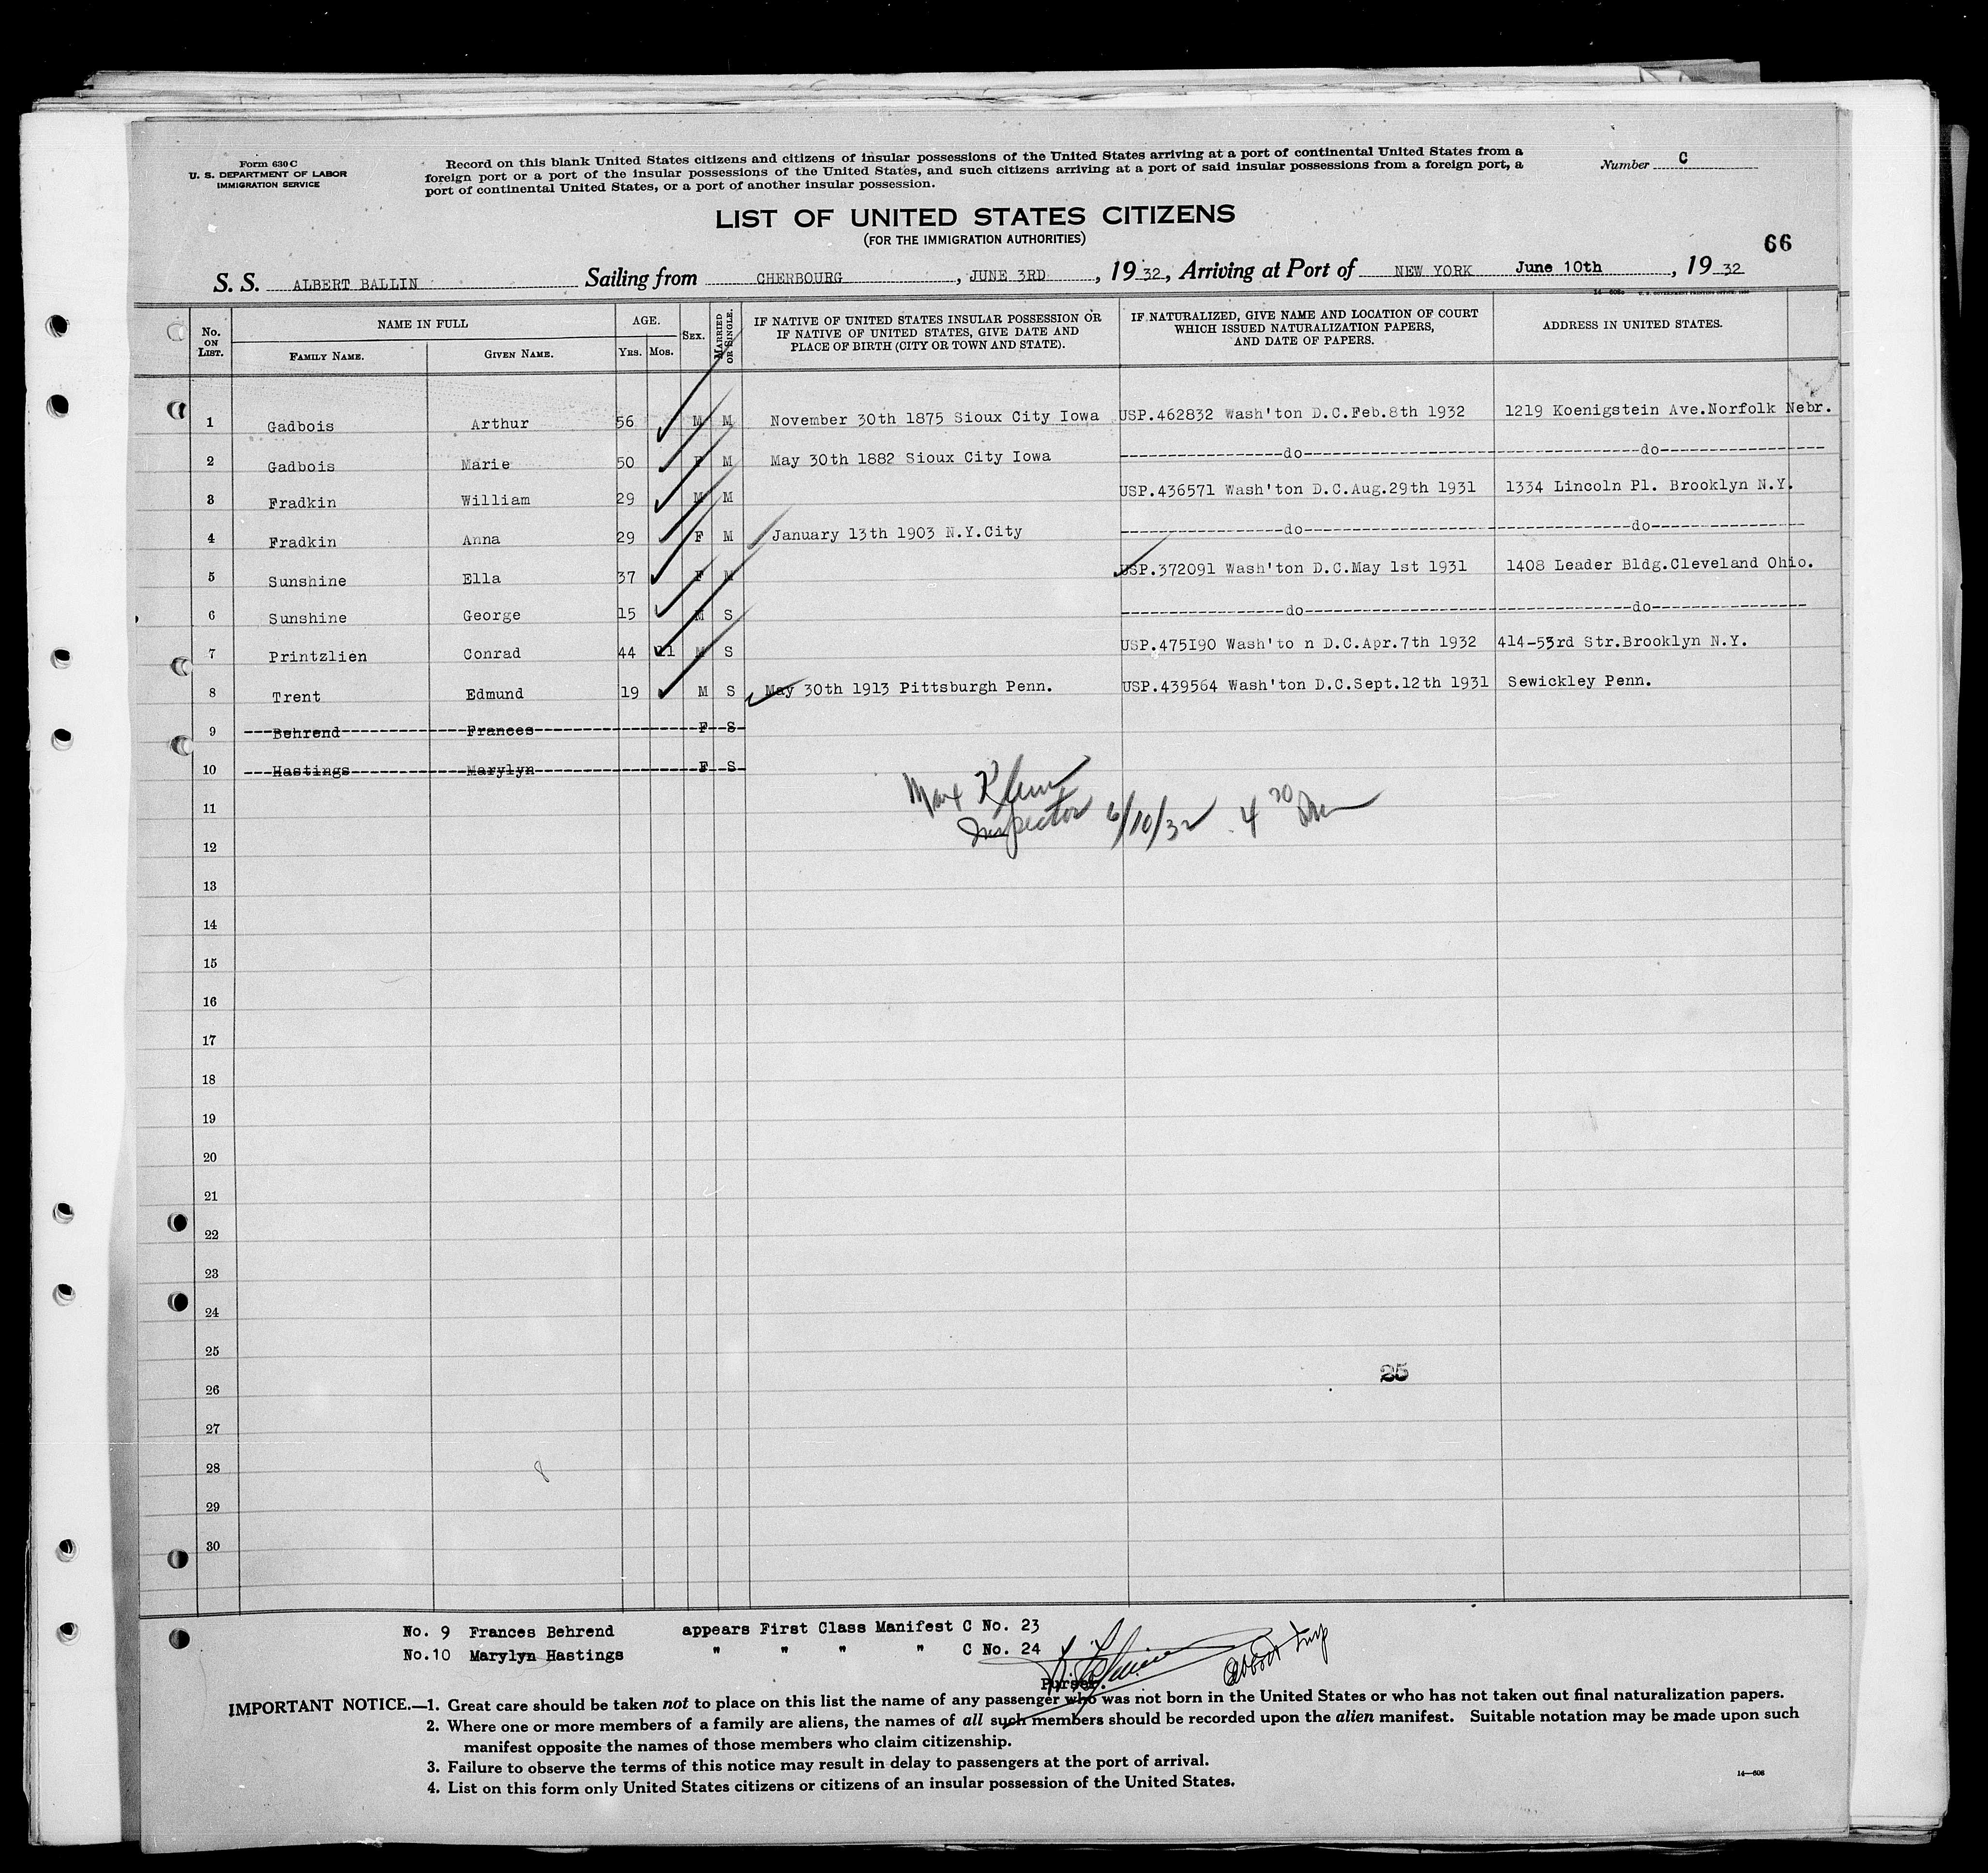 Form 630 C
U. S. DEPARTMENT OF LABOR
IMMIGRATION SERVICE
Record on this blank United States citizens and citizens of insular possessions of the United States arriving at a port of continental United States from a
foreign port or a port of the insular possessions of the United States, and such citizens arriving at a port of said insular possessions from a foreign port, a
port of continental United States, or a port of another insular possession.
Number C
LIST OF UNITED STATES CITIZENS
(FOR THE IMMIGRATION AUTHORITIES)
66
S. S. ALBERT BALLIN Sailing from CHERBOURG, JUNE 3RD, 1932, Arriving at Port of NEW YORK June 10th, 1932
No. ON LIST. NAME IN FULL FAMILY NAME. GIVEN NAME. AGE. YRS. MOS. SEX. MARRIED OR SINGLE. IF NATIVE OF UNITED STATES INSULAR POSSESSION OR IF NATIVE OF UNITED STATES, GIVE DATE AND PLACE OF BIRTH (CITY OR TOWN AND STATE). IF NATURALIZED, GIVE NAME AND LOCATION OF COURT WHICH ISSUED NATURALIZATION PAPERS, AND DATE OF PAPERS. ADDRESS IN UNITED STATES.
1 Gadbois Arthur 56 M M November 30th 1875 Sioux City Iowa USP.462832 Wash'ton D.C.Feb.8th 1932 1219 Koenigstein Ave.Norfolk Nebr.
2 Gadbois Marie 50 F M May 30th 1882 Sioux City Iowa -----do----- -----do-----
3 Fradkin William 29 M M USP.436571 Wash'ton D.C.Aug.29th 1931 1334 Lincoln Pl. Brooklyn N.Y.
4 Fradkin Anna 29 F M January 13th 1903 N.Y.City -----do----- -----do-----
5 Sunshine Ella 37 F M USP.372091 Wash'ton D.C.May 1st 1931 1408 Leader Bldg.Cleveland Ohio.
6 Sunshine George 15 M S -----do----- -----do-----
7 Printzlien Conrad 44 11 M S USP.475I90 Wash'to n D.C.Apr.7th 1932 414-53rd Str.Brooklyn N.Y.
8 Trent Edmund 19 M S May 30th 1913 Pittsburgh Penn. USP.439564 Wash'ton D.C.Sept.12th 1931 Sewickley Penn.
9 Behrend Frances F S
10 Hastings Marylyn F S
Max Klein
Inspector 6/10/32 4 30
11
12
13
14
15
16
17
18
19
20
21
22
23
24
25
25
26
27
28
8
29
30
No. 9 Frances Behrend appears First Class Manifest C No. 23
No.10 Marylyn Hastings " " " " C No. 24
Purser.
IMPORTANT NOTICE.—1. Great care should be taken not to place on this list the name of any passenger who was not born in the United States or who has not taken out final naturalization papers.
2. Where one or more members of a family are aliens, the names of all such members should be recorded upon the alien manifest. Suitable notation may be made upon such
manifest opposite the names of those members who claim citizenship.
3. Failure to observe the terms of this notice may result in delay to passengers at the port of arrival.
4. List on this form only United States citizens or citizens of an insular possession of the United States.
14—606